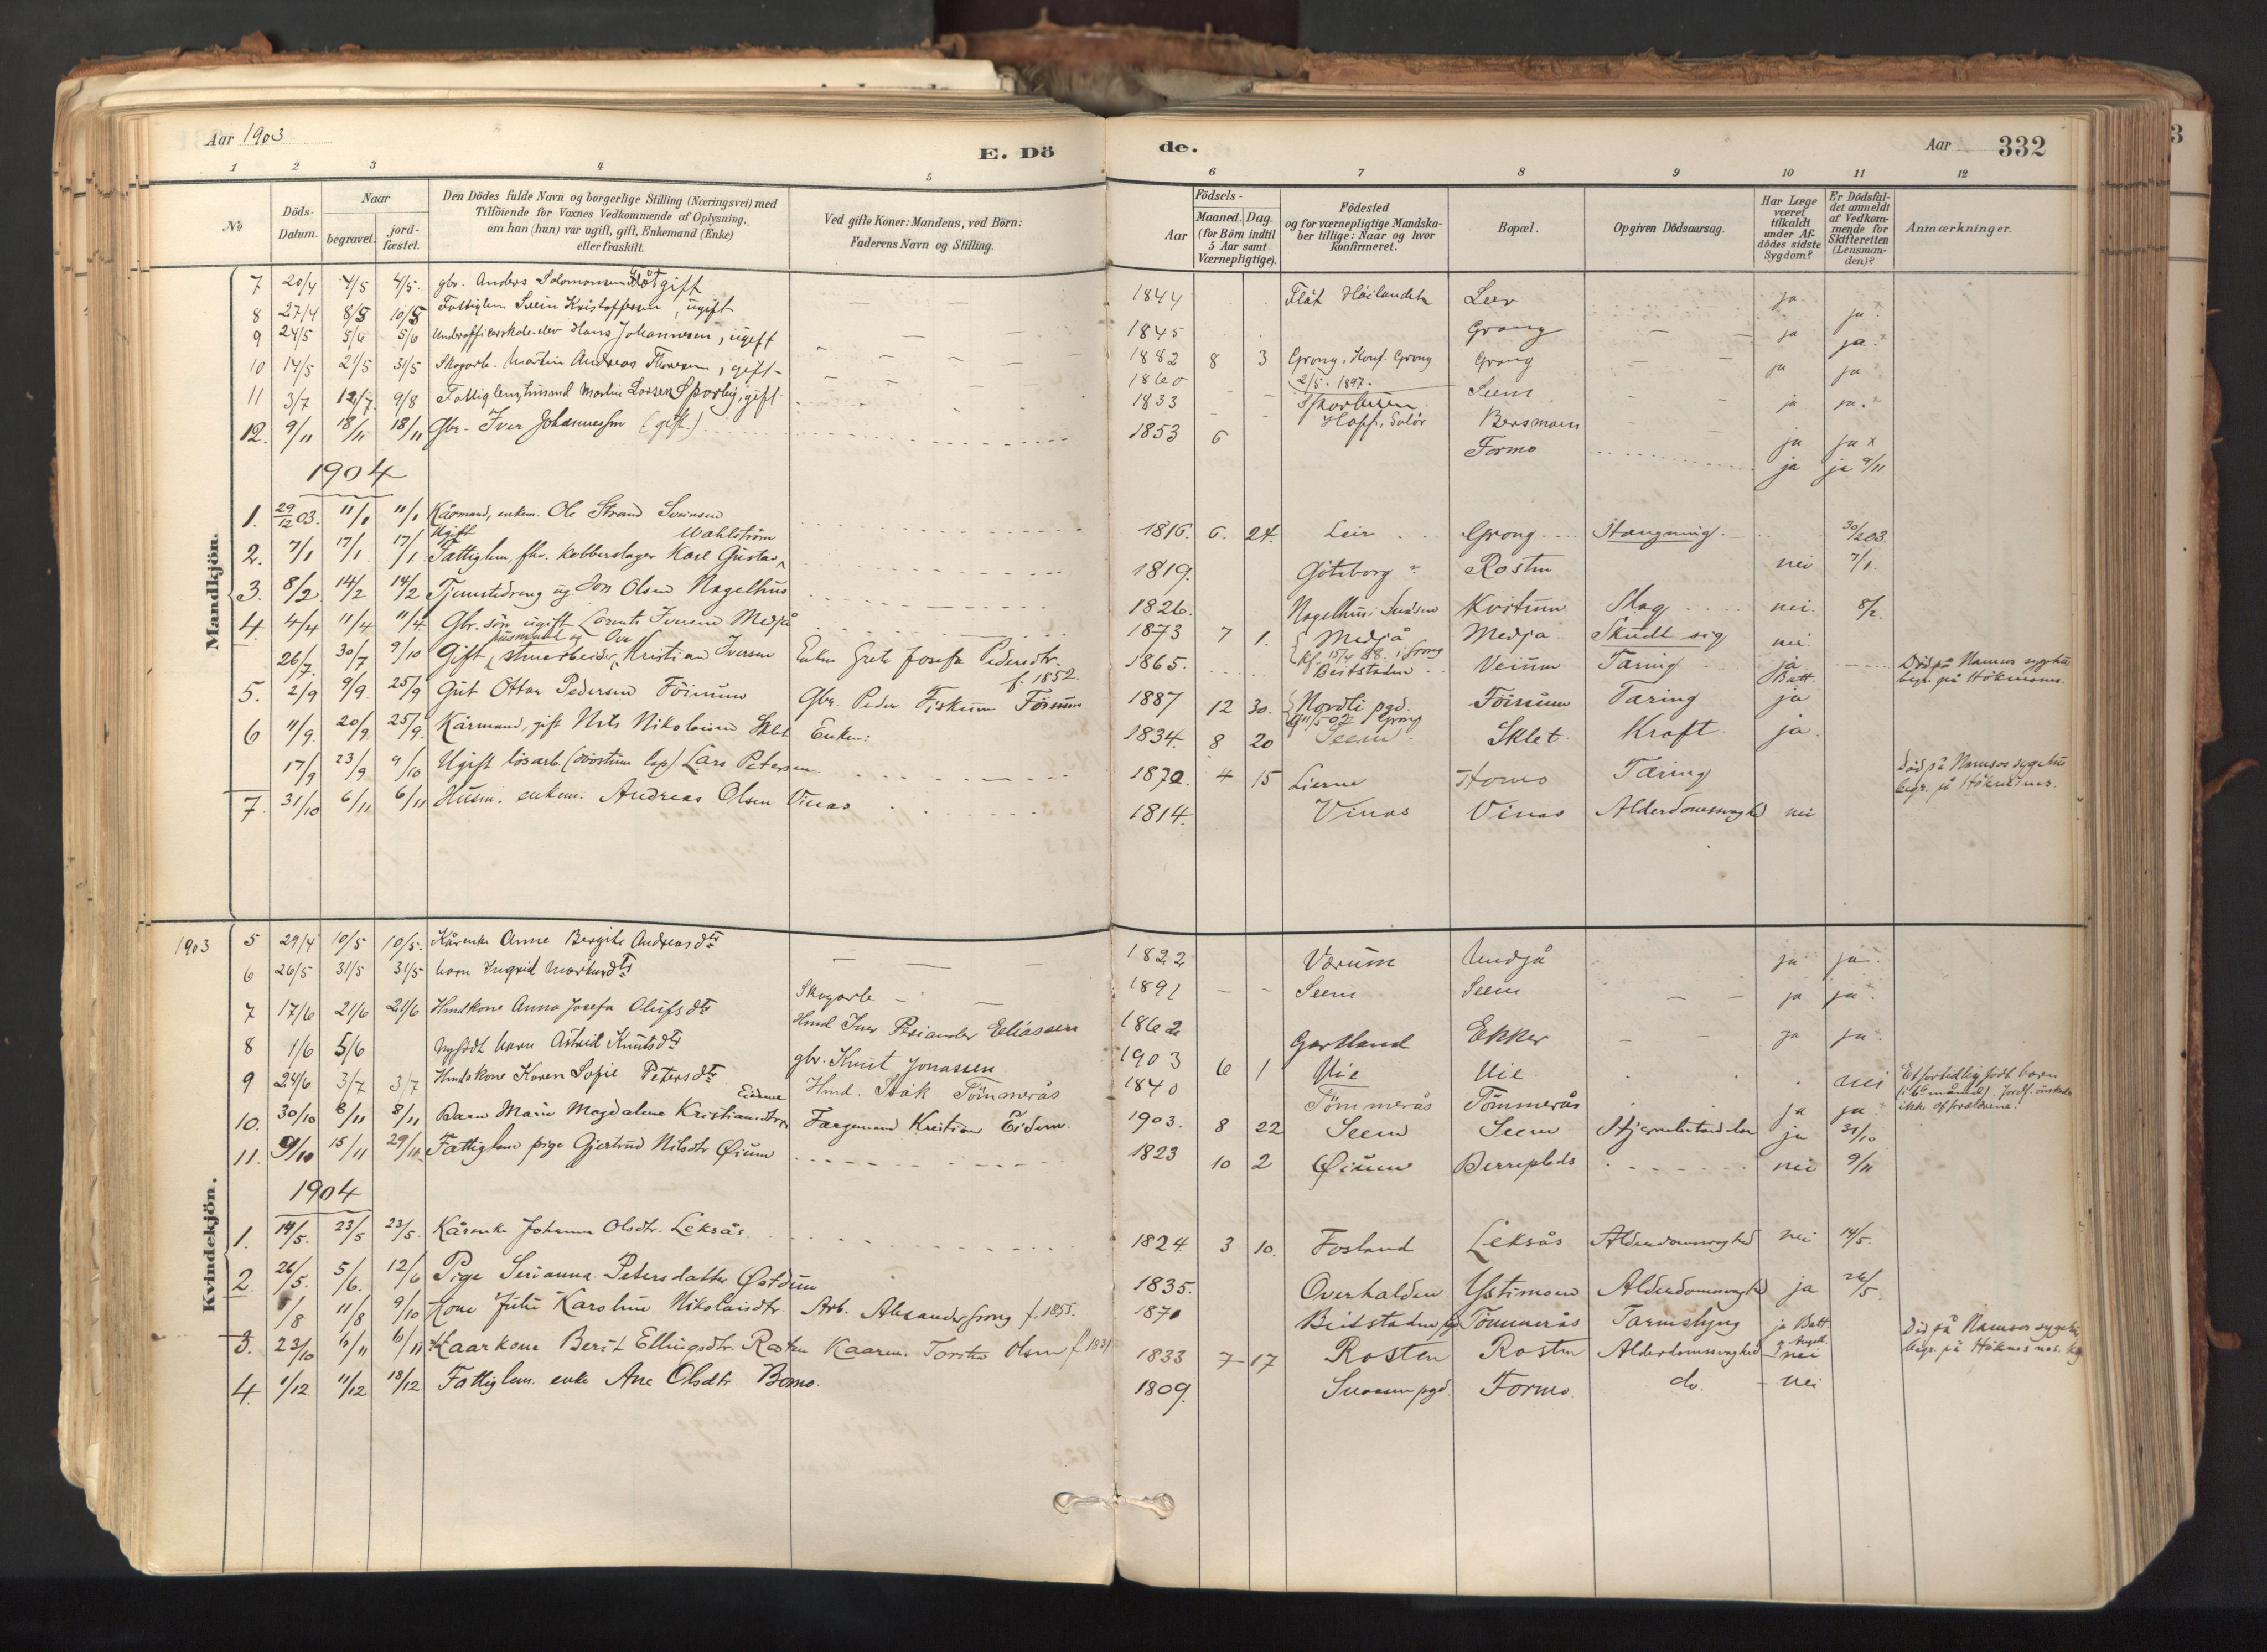 Aar 1903
E. Dö
de.
Aar 332
1 2 3 4 5 6 7 8 9 10 11 12
№
Döds-Datum.
Naar
begravet.
jord-fæstet.
Den Dödes fulde Navn og borgerlige Stilling (Næringsvei) med
Tilföiende for Voxnes Vedkommende af Oplysning,
om han (hun) var ugift, gift, Enkemand (Enke)
eller fraskilt.
Ved gifte Koner: Mandens, ved Börn:
Faderens Navn og Stilling.
Födsels-
Aar
Maaned. Dag.
(for Börn indtil
5 Aar samt
Værnepligtige).
Födested
og for værnepligtige Mandska-
ber tillige: Naar og hvor
konfirmeret.
Bopæl.
Opgiven Dödsaarsag.
Har Læge
været
tilkaldt
under Af-
dödes sidste
Sygdom?
Er Dödsfal-
det anmeldt
af Vedkom-
mende for
Skifteretten
(Lensman-
den)?
Anmærkninger.
Mandkjön.
7 20/4 4/5 4/5. gbr. Anders Solomonsen Flåt gift 1844 Flåt Höilandet Leer ja ja
8 27/4 8/5 10/5 Fattiglem Svein Kristoffersen, ugift 1845 Grong ja ja
9 24/5 5/6 5/6 Underofficerskole-elev Hans Johannesen, ugift 1882 8 3 Grong. Konf. Grong 2/5. 1897. Grong ja ja
10 14/5 21/5 31/5 Skogarb. Martin Andreas Thoresen, gift 1860 Seem ja ja
11 3/7 12/7 9/8 Fattiglem, husmd Martin Larsen, gift 1833 Bersmoen ja ja x
12. 9/11 18/11 18/11 Gbr. Iver Johannessen (gift.) 1853 6 Formo ja ja 9/11
1904
1. 29/12 03. 11/1 11/1 Kårmand, enkem. Ole Strand Sveinsen 1816. 6. 24. Leir Grong Hængning. 30/12 03.
2. 7/1 17/1 17/1 Ugift Fattiglem, fhv. kobberslager Karl Gustav Wahlström 1819. Göteborg Rosten nei 7/1.
3. 8/2 14/2 14/2 Tjenestedreng ug Jon Olsen Nagelhus 1826. Nagelhus Kvitum Slag nei. 8/2.
4. 4/4 11/4 11/4 Gbr. sön ugift Lorents Iversen Medjå 1873 7 1. Medjå kf. 15/4 88. i Grong Medjå Skudt sig nei
26/7 30/7 9/10 Gift husmand og Ove Kristian Iversen Enken Grete Josefa Pedersdtr. f. 1852. 1865. Beitstaden Veium Tæring ja Batt Död på Namsos sygehus begr. på Höknesnes.
5. 2/9 9/9. 25/9 Gut Ottar Pedersen Föinum Gbr. Peder Fiskum Föinum 1887 12 30. Nordli pgd. Grong Föinum Tæring ja
6 11/9. 20/9. 25/9. Kårmand, gift Nils Nikolaisen Sklet Enken: 1834. 8 20 Seem Sklet Kræft ja.
17/9 23/9 9/10 Ugift lösarb. Lars Petersen 1870. 4 15 Lierne Tæring Död på Namsos sygehus begr. på Höknesnes.
7. 31/10 6/11 6/11 Husm. enkem. Andreas Olsen Vinas 1814. Vinas Vinas Alderdomssvaghed nei
Kvindekjön.
1903 5 29/4 10/5 10/5. Kårenke Anne Bergite Andreasdtr 1822 Værum Medjå ja ja
6 26/5 31/5 31/5 barn Ingrid Martinsdtr Skogarb 1891 Seem Seem ja ja
7 17/6 21/6 21/6 Hmdskone Anna Josefa Olufsdtr Hmd Iver Periander Eliassen 1862 Gartland Ekker ja ja
8 1/6 5/6 Nyfödt barn Astrid Knutsdtr gbr. Knut Jonassen 1903 6 1 Uie Uie nei Et fortidlig födt barn
9 24/6 3/7 3/7 Hmdskone Karen Sofie Petersdtr Hmd. Isak Tömmerås 1840 Tömmerås Tömmerås ja ja
10. 30/10 8/11 8/11 Barn Marie Magdalene Kristiansdtr Eidum Færgemand Kristian Eidum. 1903. 8 22 Seem Seem Hjernebetændelse ja 31/10
11. 9/10 15/11 29/11 Fattiglem pige Gjertrud Nilsdtr Øium 1823 10 2 Øium nei 9/11
1904
1. 14/5. 23/5 23/5. Kårenke Johanna Olsdtr. Leksås. 1824. 3 10. Fosland Leksås Alderdomssvaghed nei 14/5.
2. 26/5. 5/6. 12/6 Pige Serianna Petersdatter Østdun 1835. Overhalden Ystimoen Alderdomssvaghed ja 26/5.
1/8 11/8 9/10 Kone Julie Karoline Nikolaisdtr. Arb. Alexander Grong f. 1855. 1870 Beitstaden pg. Tömmerås Tarmslyng ja Batt Död på Namsos sygehus begr. på Höknesnes.
3. 23/10 6/11 6/11 Kaarkone Berit Ellingsdtr. Rosten Kaarm. Torsten Olsen f 1831 1833 7 17 Rosten Rosten Alderdomssvaghed nei
4. 1/12 11/12 18/12 Fattiglem. enke Ane Olsdtr Bomo. 1809. Snaasen pgd. Formo. do. nei